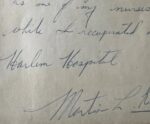 is one of my nurses
while I recuperated
Harlem Hospital
Martin L. K